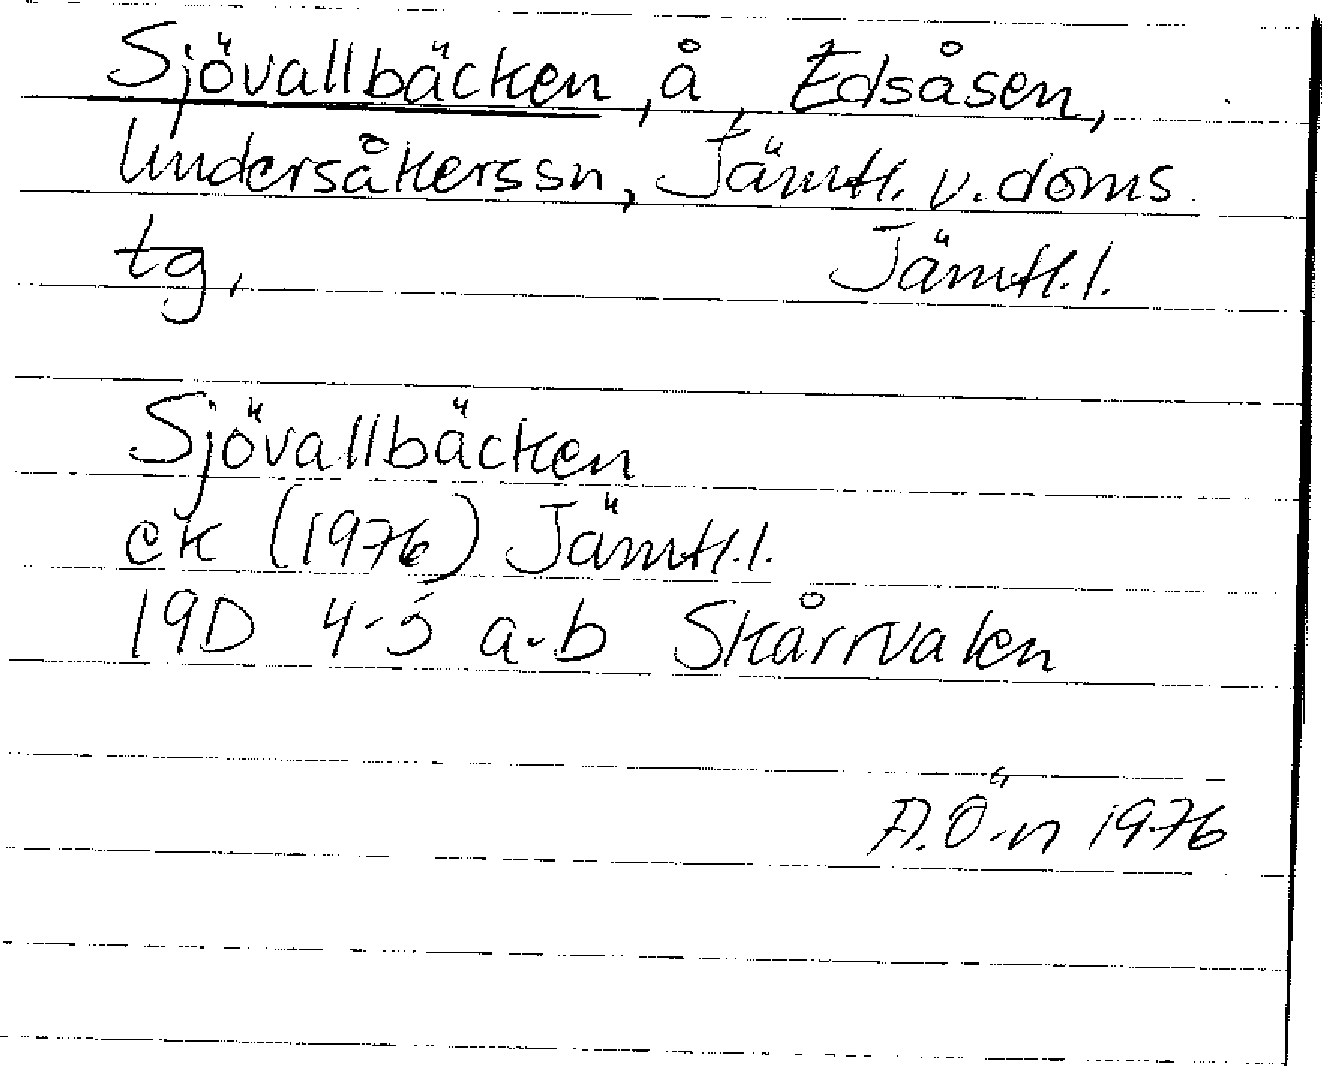 Sjövallbäcken, å, Edsåsen,
Undersåkers sn, Jämtl. v. doms
tg, Jämtl. l.
Sjövallbäcken
ek (1976) Jämtl. l.
19D 4-5 a-b Skårrvalen
A.Ö-n 1976